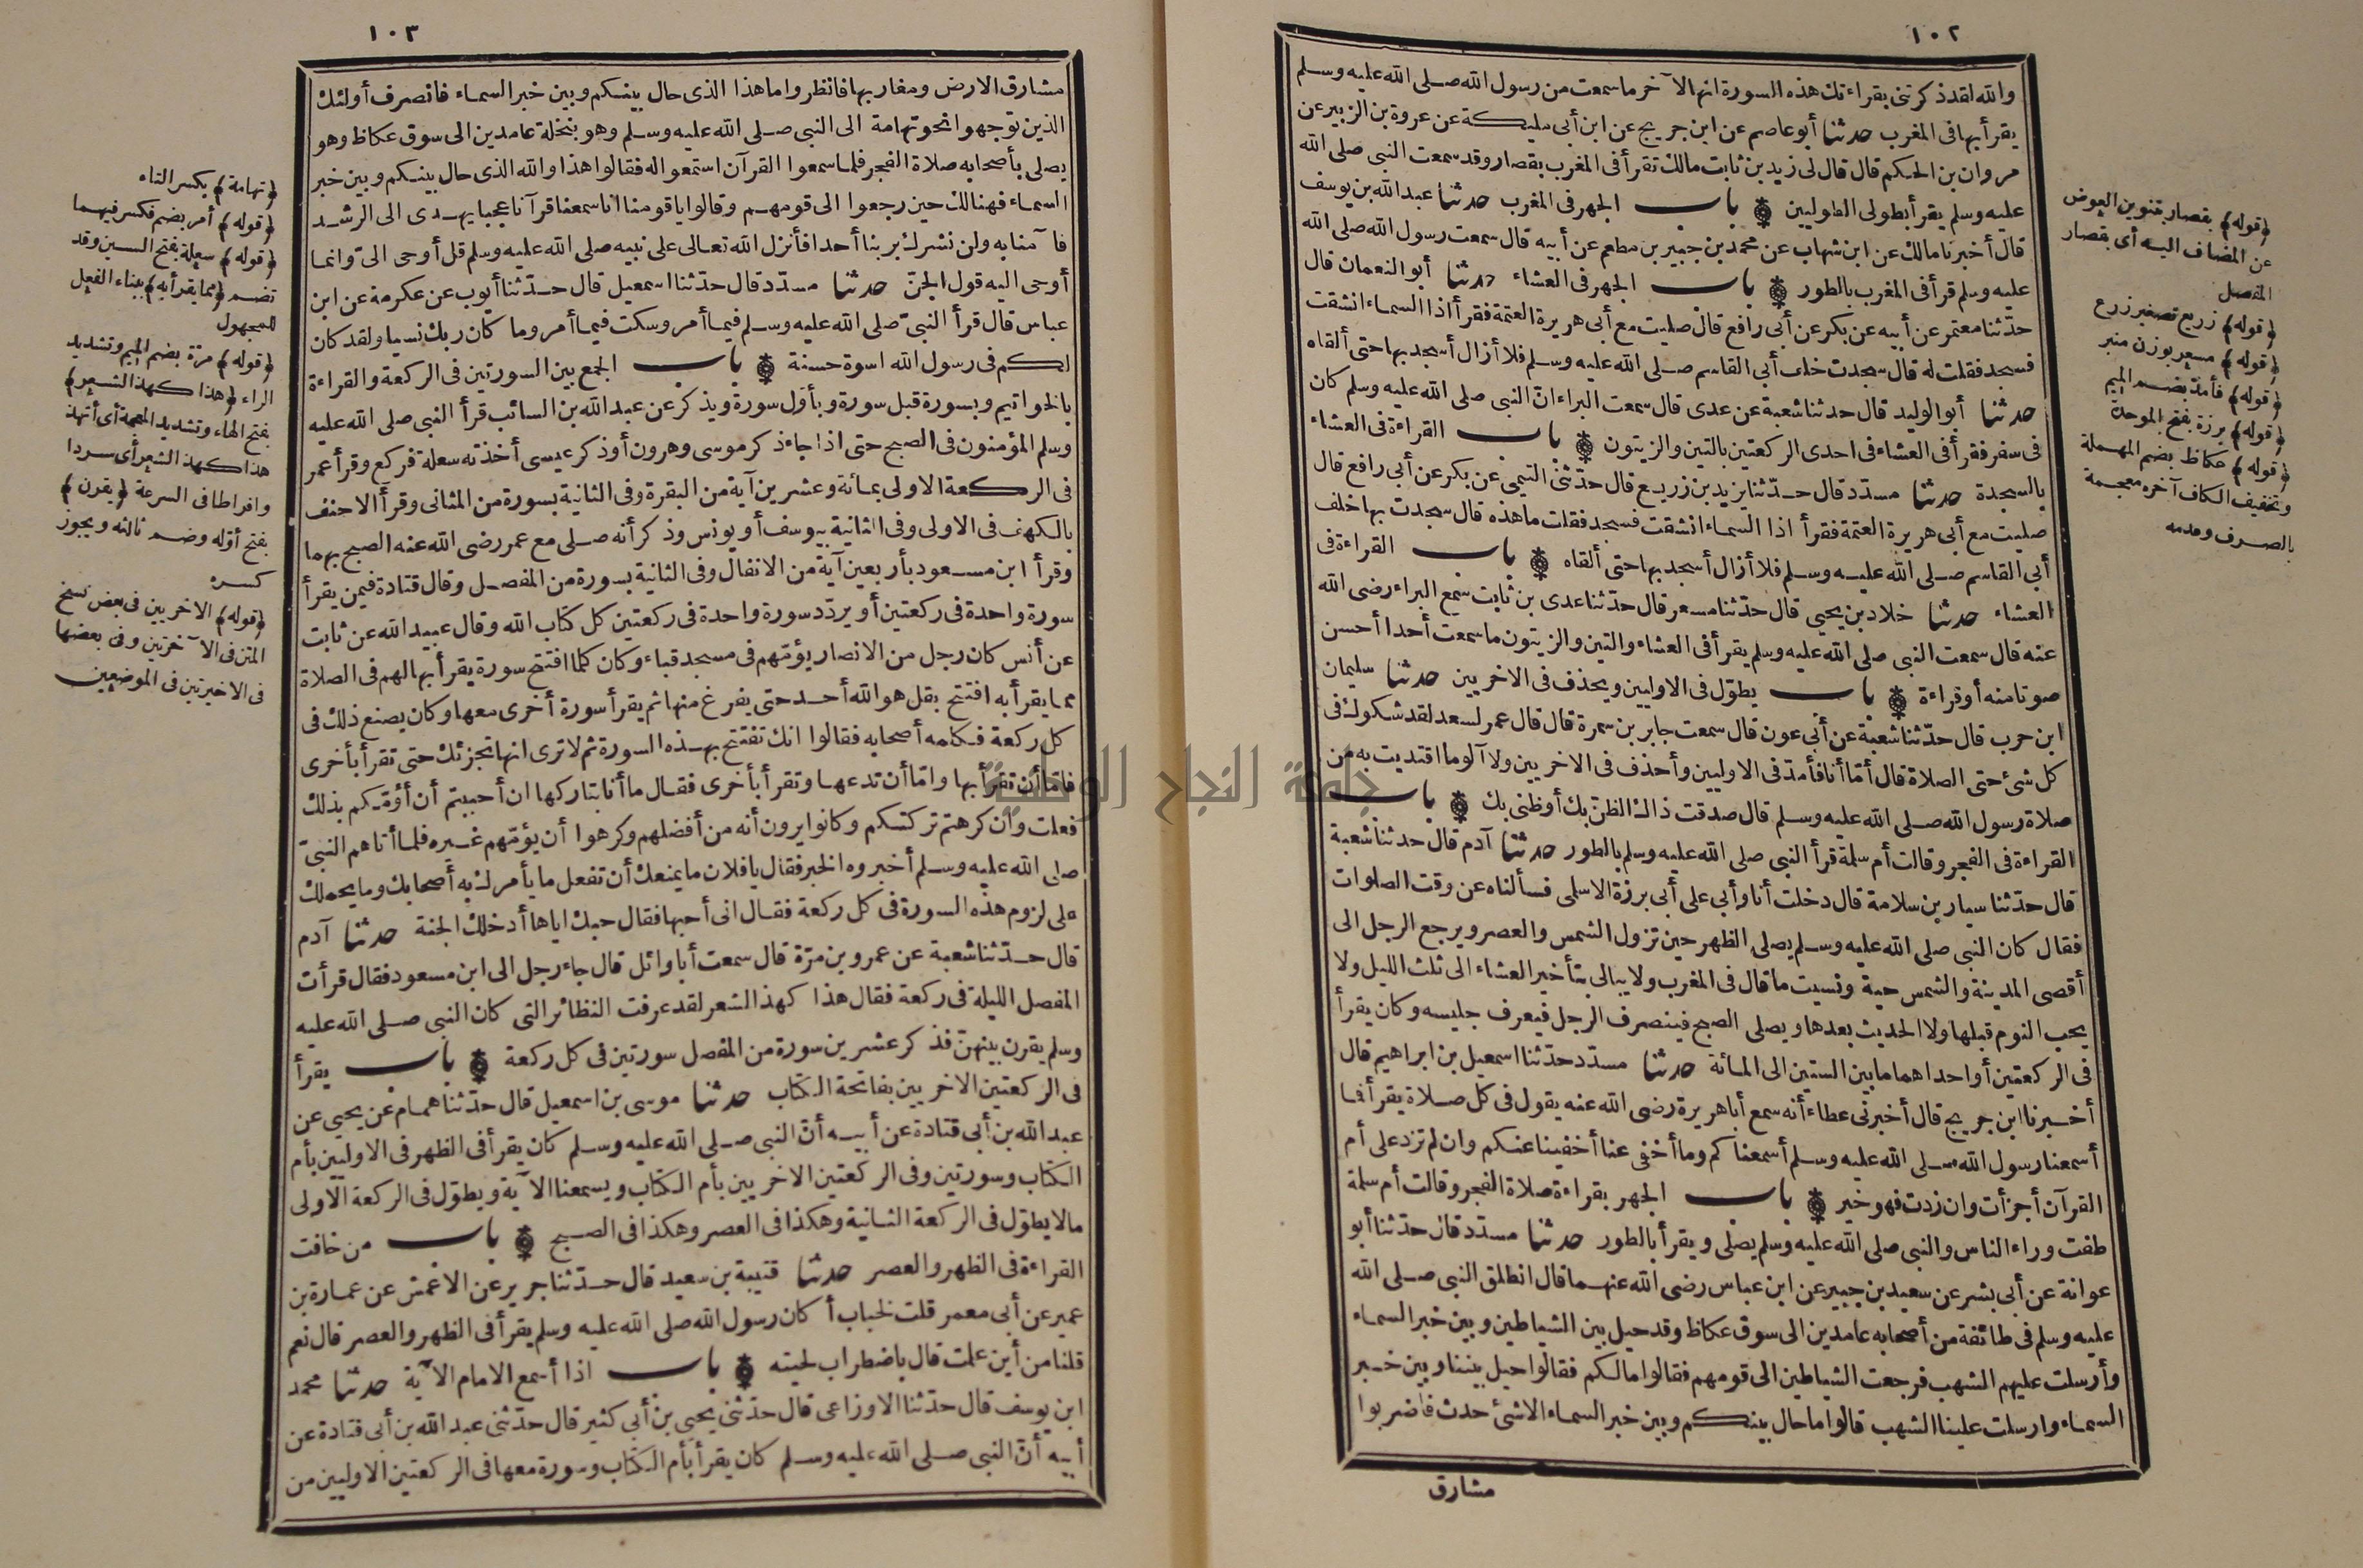 ١٠٢
والله لقد ذكرتني بقراءتك هذه السورة انها لآخر ما سمعت من رسول الله صلى الله عليه وسلم
يقرأ بها فى المغرب حدثنا أبو عاصم عن ابن جريج عن ابن أبى مليكة عن عروة بن الزبير عن
مروان بن الحكم قال قال لى زيد بن ثابت مالك تقرأ فى المغرب بقصار وقد سمعت النبى صلى الله
عليه وسلم يقرأ بطولى الطوليين باب الجهر فى المغرب حدثنا عبد الله بن يوسف
قال أخبرنا مالك عن ابن شهاب عن محمد بن جبير بن مطعم عن أبيه قال سمعت رسول الله صلى الله
عليه وسلم قرأ فى المغرب بالطور باب الجهر فى العشاء حدثنا أبو النعمان قال
حدّثنا معتمر عن أبيه عن بكر عن أبى رافع قال صليت مع أبى هريرة العتمة فقرأ اذا السماء انشقت
فسجد فقلت له قال سجدت خلف أبى القاسم صلى الله عليه وسلم فلا أزال أسجد بها حتى ألقاه
حدثنا أبو الوليد قال حدثنا شعبة عن عدى قال سمعت البراء انّ النبى صلى الله عليه وسلم كان
فى سفر فقرأ فى العشاء فى احدى الركعتين بالتين والزيتون باب القراءة فى العشاء
بالسجدة حدثنا مسدّد قال حدّثنا يزيد بن زريع قال حدّثنى التيمى عن بكر عن أبى رافع قال
صليت مع أبى هريرة العتمة فقرأ اذا السماء انشقت فسجد فقلت ما هذه قال سجدت بها خلف
أبى القاسم صلى الله عليه وسلم فلا أزال أسجد بها حتى ألقاه باب القراءة فى
العشاء حدثنا خلاد بن يحيى قال حدّثنا مسعر قال حدّثنا عدى بن ثابت سمع البراء رضى الله
عنه قال سمعت النبى صلى الله عليه وسلم يقرأ فى العشاء والتين والزيتون ما سمعت أحدا أحسن
صوتا منه أو قراءة باب يطوّل فى الاوليين ويحذف فى الاخريين حدثنا سليمان
ابن حرب قال حدّثنا شعبة عن أبى عون قال سمعت جابر بن سمرة قال قال عمر لسعد لقد شكوك فى
كل شئ حتى الصلاة قال أمّا أنا فأمدّ فى الاوليين وأحذف فى الاخريين ولا آلو ما اقتديت به من
صلاة رسول الله صلى الله عليه وسلم قال صدقت ذاك الظنّ بك أو ظنى بك باب
القراءة فى الفجر وقالت أم سلمة قرأ النبى صلى الله عليه وسلم بالطور حدثنا آدم قال حدثنا شعبة
قال حدّثنا سيار بن سلامة قال دخلت أنا وأبى على أبى برزة الاسلمى فسألناه عن وقت الصلوات
فقال كان النبى صلى الله عليه وسلم يصلى الظهر حين تزول الشمس والعصر ويرجع الرجل الى
أقصى المدينة والشمس حية ونسيت ما قال فى المغرب ولا يبالى بتأخير العشاء الى ثلث الليل ولا
يحب النوم قبلها ولا الحديث بعدها ويصلى الصبح فينصرف الرجل فيعرف جليسه وكان يقرأ
فى الركعتين أو احداهما ما بين الستين الى المائة حدثنا مسدّد حدّثنا اسمعيل بن ابراهيم قال
أخبرنا ابن جريج قال أخبرنى عطاء أنه سمع أبا هريرة رضى الله عنه يقول فى كل صلاة يقرأ فما
أسمعنا رسول الله صلى الله عليه وسلم أسمعناكم وما أخفى عنا أخفينا عنكم وان لم تزد على أم
القرآن أجزأت وان زدت فهو خير باب الجهر بقراءة صلاة الفجر وقالت أم سلمة
طفت وراء الناس والنبى صلى الله عليه وسلم يصلى ويقرأ بالطور حدثنا مسدّد قال حدّثنا أبو
عوانة عن أبى بشر عن سعيد بن جبير عن ابن عباس رضى الله عنهما قال انطلق النبى صلى الله
عليه وسلم فى طائفة من أصحابه عامدين الى سوق عكاظ وقد حيل بين الشياطين وبين خبر السماء
وأرسلت عليهم الشهب فرجعت الشياطين الى قومهم فقالوا مالكم فقالوا حيل بيننا وبين خبر
السماء وارسلت علينا الشهب قالوا ما حال بينكم وبين خبر السماء الا شئ حدث فاضربوا
مشارق
﴿قوله﴾ بقصار بتنوين العوض
عن المضاف اليه أى بقصار
المفصل
﴿قوله﴾ زريع تصغير زرع
﴿قوله﴾ مسعر بوزن منبر
﴿قوله﴾ فأمدّ بضم الميم
﴿قوله﴾ برزة بفتح الموحدة
﴿قوله﴾ عكاظ بضم المهملة
وتخفيف الكاف آخره معجمة
بالصرف وعدمه
١٠٣
مشارق الارض ومغاربها فانظروا ما هذا الذى حال بينكم وبين خبر السماء فانصرف أولئك
الذين توجهوا نحو تهامة الى النبى صلى الله عليه وسلم وهو بنخلة عامدين الى سوق عكاظ وهو
يصلى بأصحابه صلاة الفجر فلما سمعوا القرآن استمعوا له فقالوا هذا والله الذى حال بينكم وبين خبر
السماء فهنالك حين رجعوا الى قومهم وقالوا يا قومنا انا سمعنا قرآنا عجبا يهدى الى الرشد
فآمنا به ولن نشرك بربنا أحدا فأنزل الله تعالى على نبيه صلى الله عليه وسلم قل أوحى الىّ وانما
أوحى اليه قول الجنّ حدثنا مسدّد قال حدّثنا اسمعيل قال حدّثنا أيوب عن عكرمة عن ابن
عباس قال قرأ النبىّ صلى الله عليه وسلم فيما أمر وسكت فيما أمر وما كان ربك نسيا ولقد كان
لكم فى رسول الله اسوة حسنة باب الجمع بين السورتين فى الركعة والقراءة
بالخواتيم وبسورة قبل سورة وبأول سورة ويذكر عن عبد الله بن السائب قرأ النبى صلى الله عليه
وسلم المؤمنون فى الصبح حتى اذا جاء ذكر موسى وهرون أو ذكر عيسى أخذته سعلة فركع وقرأ عمر
فى الركعة الاولى بمائة وعشرين آية من البقرة وفى الثانية بسورة من المثانى وقرأ الاحنف
بالكهف فى الاولى وفى الثانية بيوسف أو يونس وذكر أنه صلى مع عمر رضى الله عنه الصبح بهما
وقرأ ابن مسعود بأربعين آية من الانفال وفى الثانية بسورة من المفصل وقال قتادة فيمن يقرأ
سورة واحدة فى ركعتين أو يردّد سورة واحدة فى ركعتين كل كتاب الله وقال عبيد الله عن ثابت
عن أنس كان رجل من الانصار يؤمّهم فى مسجد قباء وكان كلما افتتح سورة يقرأ بها لهم فى الصلاة
مما يقرأ به افتتح بقل هو الله أحد حتى يفرغ منها ثم يقرأ سورة أخرى معها وكان يصنع ذلك فى
كل ركعة فكلمه أصحابه فقالوا انك تفتتح بهذه السورة ثم لا ترى انها تجزئك حتى تقرأ بأخرى
فامّا أن تقرأ بها وامّا أن تدعها وتقرأ بأخرى فقال ما أنا بتاركها ان أحببتم أن أؤمّكم بذلك
فعلت وان كرهتم تركتكم وكانوا يرون أنه من أفضلهم وكرهوا أن يؤمّهم غيره فلما أتاهم النبىّ
صلى الله عليه وسلم أخبروه الخبر فقال يا فلان ما يمنعك أن تفعل ما يأمرك به أصحابك وما يحملك
على لزوم هذه السورة فى كل ركعة فقال انى أحبها فقال حبك اياها أدخلك الجنة حدثنا آدم
قال حدّثنا شعبة عن عمرو بن مرّة قال سمعت أبا وائل قال جاء رجل الى ابن مسعود فقال قرأت
المفصل الليلة فى ركعة فقال هذا كهذ الشعر لقد عرفت النظائر التى كان النبى صلى الله عليه
وسلم يقرن بينهنّ فذكر عشرين سورة من المفصل سورتين فى كل ركعة باب يقرأ
فى الركعتين الاخريين بفاتحة الكتاب حدثنا موسى بن اسمعيل قال حدّثنا همام عن يحيى عن
عبد الله بن أبى قتادة عن أبيه أنّ النبى صلى الله عليه وسلم كان يقرأ فى الظهر فى الاوليين بأم
الكتاب وسورتين وفى الركعتين الاخريين بأم الكتاب ويسمعنا الآية ويطوّل فى الركعة الاولى
مالا يطوّل فى الركعة الثانية وهكذا فى العصر وهكذا فى الصبح باب من خافت
القراءة فى الظهر والعصر حدثنا قتيبة بن سعيد قال حدّثنا جرير عن الاعمش عن عمارة بن
عمير عن أبى معمر قلت لخباب أكان رسول الله صلى الله عليه وسلم يقرأ فى الظهر والعصر قال نعم
قلنا من أين علمت قال باضطراب لحيته باب اذا أسمع الامام الآية حدثنا محمد
ابن يوسف قال حدّثنا الاوزاعى قال حدّثنى يحيى بن أبى كثير قال حدّثنى عبد الله بن أبى قتادة عن
أبيه أنّ النبى صلى الله عليه وسلم كان يقرأ بأم الكتاب وسورة معها فى الركعتين الاوليين من
﴿تهامة﴾ بكسر التاء
﴿قوله﴾ أمر بضم فكسر فيهما
﴿قوله﴾ سعلة بفتح السين وقد
تضم ﴿مما يقرأ به﴾ ببناء الفعل
للمجهول
﴿قوله﴾ مرّة بضم الميم وتشديد
الراء ﴿هذا كهذ الشعر﴾
بفتح الهاء وتشديد المعجمة أى أتهذ
هذا كهذ الشعر أى سردا
وافراطا فى السرعة ﴿يقرن﴾
بفتح أوّله وضم ثالثه ويجوز
كسره
﴿قوله﴾ الاخريين فى بعض نسخ
المتن فى الآخرتين وفى بعضها
فى الاخيرتين فى الموضعين
جامعة النجاح الوطنية